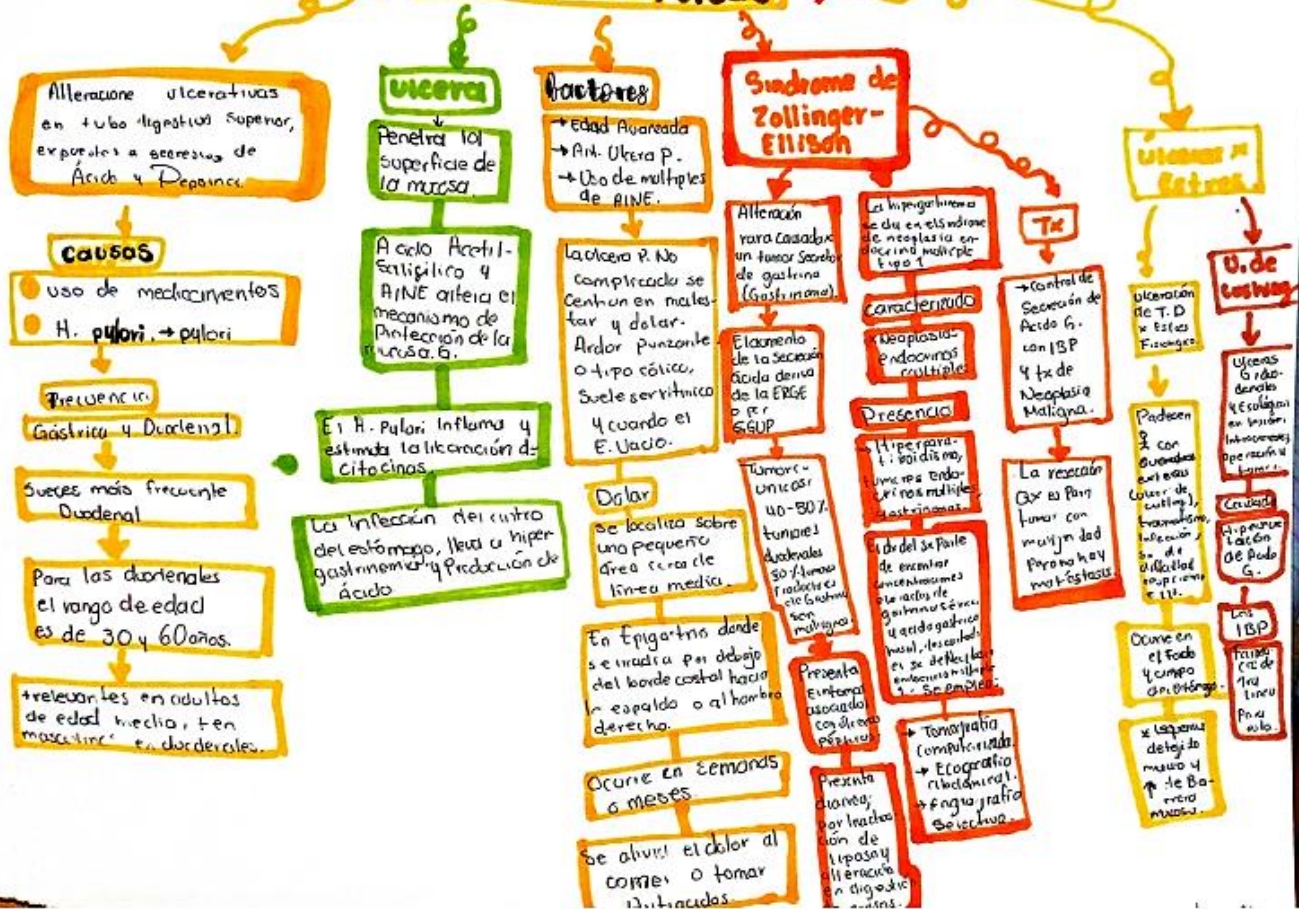 Alteracione ulcerativas
en tubo digestivo Superior,
expuestos a secresios de
Ácido y Pepsina.
causas
uso de medicamentos
H. pylori. → pylori
Frecuencia.
Gástrica y Duodenal.
más frecuente
Duodenal
Para las duodenales
el rango de edad
es de 30 y 60 años.
+relevantes en adultos
de edad media, + en
en duodenales.
ulcera
Penetra
superficie de
la mucosa
Acido Acetil-
Saligílico y
AINE altera el
mecanismo de
Protección de la
mucosa. G.
El H. Pylori Inflama y
estimula la liberación de
citocinas.
La infección del
del estómago, lleva a hiper
gastrinemia y Producción de
Ácido
factores
→ Edad Avanzada
→ Ant. Ulcera P.
→ Uso de multiples
de AINE.
La ulcera P. No
complicada se
centran en males-
tar y dolor.
Ardor punzante
o tipo cólico,
Suele ser ritmico
y cuando el
E. Vacio.
Dolar
Se localiza sobre
una pequeña
área cerca de
linea media.
En Epigastrio donde
se irradia por debajo
del borde costal hacia
la espalda o al hombro
derecho.
Ocurre en Semanas
o meses.
Se alivia el dolor al
comer o tomar
Antiacidos.
Sindrome de
Zollinger-
Ellison
Alteración
rara causada x
un tumor Secretor
de gastrina
(Gastrinoma).
El aumento
de la Secreción
ácida deriva
de la ERGE
o por
Tumores
unicos:
tumores
duodenales
50%
de Gastrina
son
malignos.
Presenta
Sintomas
asociados
con úlceras
Pépticas.
Presenta
diarrea,
por Inactiva
ción de
lipasa y
alteración
en digestión
La hipergastrinemia
se da en el Sindrome
de neoplasia en-
docrina multiple
tipo 1
Caracterizado
x Neoplasia
endocrinas
multiples
Presencia
→ Hiperpara-
tiroidismo,
tumores endo-
crinos multiples,
gastrinomas.
de encontrar
concentraciones
elevadas de
gastrina sérica
y acido gastrico
basal, descartado
Se emplea:
→ Tomografía
Computarizada.
→ Ecografía
→ Angiografía
Selectiva.
Tx
→ Control de
Secreción de
Acido G.
con IBP
y tx de
Neoplasia
Maligna.
La resección
Qx es Para
tumor con
malignidad
Pero no hay
metástasis.
Ulceras x
Estres.
Ulceración
de T.D
x Estres
Fisiologico.
Padecen
con
quemaduras
extensas
traumatismo,
Infección,
dificultad
Ocurre en
el Fondo
y cuerpo
del estómago.
x Isquemia
de tejido
mucoso y
↑ de Ba-
rrera
mucosa.
U. de
Cushing
Ulceras
G, duo-
denales
y Esofágicas
en lesión
Intracraneal,
operación y
tumor.
Causada
Hipersecre
tación
de Acido
G.
Los
IBP
1ra
linea
Para